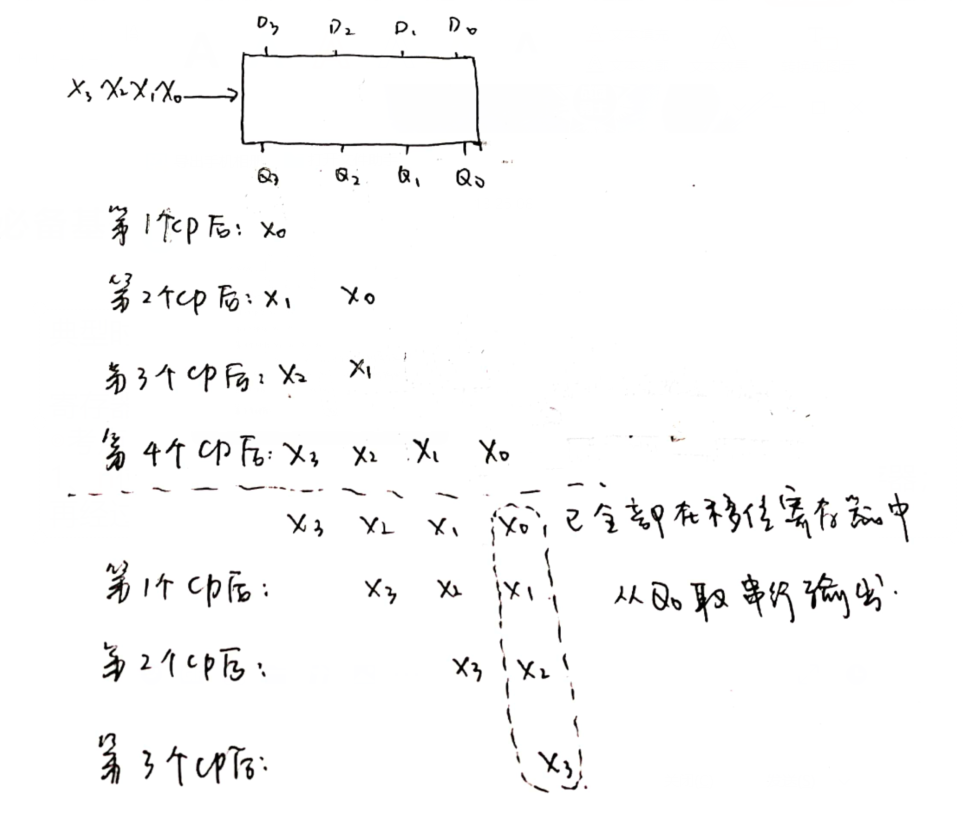 D₃ D₂ D₁ D₀
X₃ X₂ X₁ X₀
Q₃ Q₂ Q₁ Q₀
第1个CP后: X₀
第2个CP后: X₁ X₀
第3个CP后: X₂ X₁
第4个CP后: X₃ X₂ X₁ X₀
X₃ X₂ X₁ X₀ 已全部在移位寄存器中
第1个CP后: X₃ X₂ X₁ 从Q₀取串行输出.
第2个CP后: X₃ X₂
第3个CP后: X₃